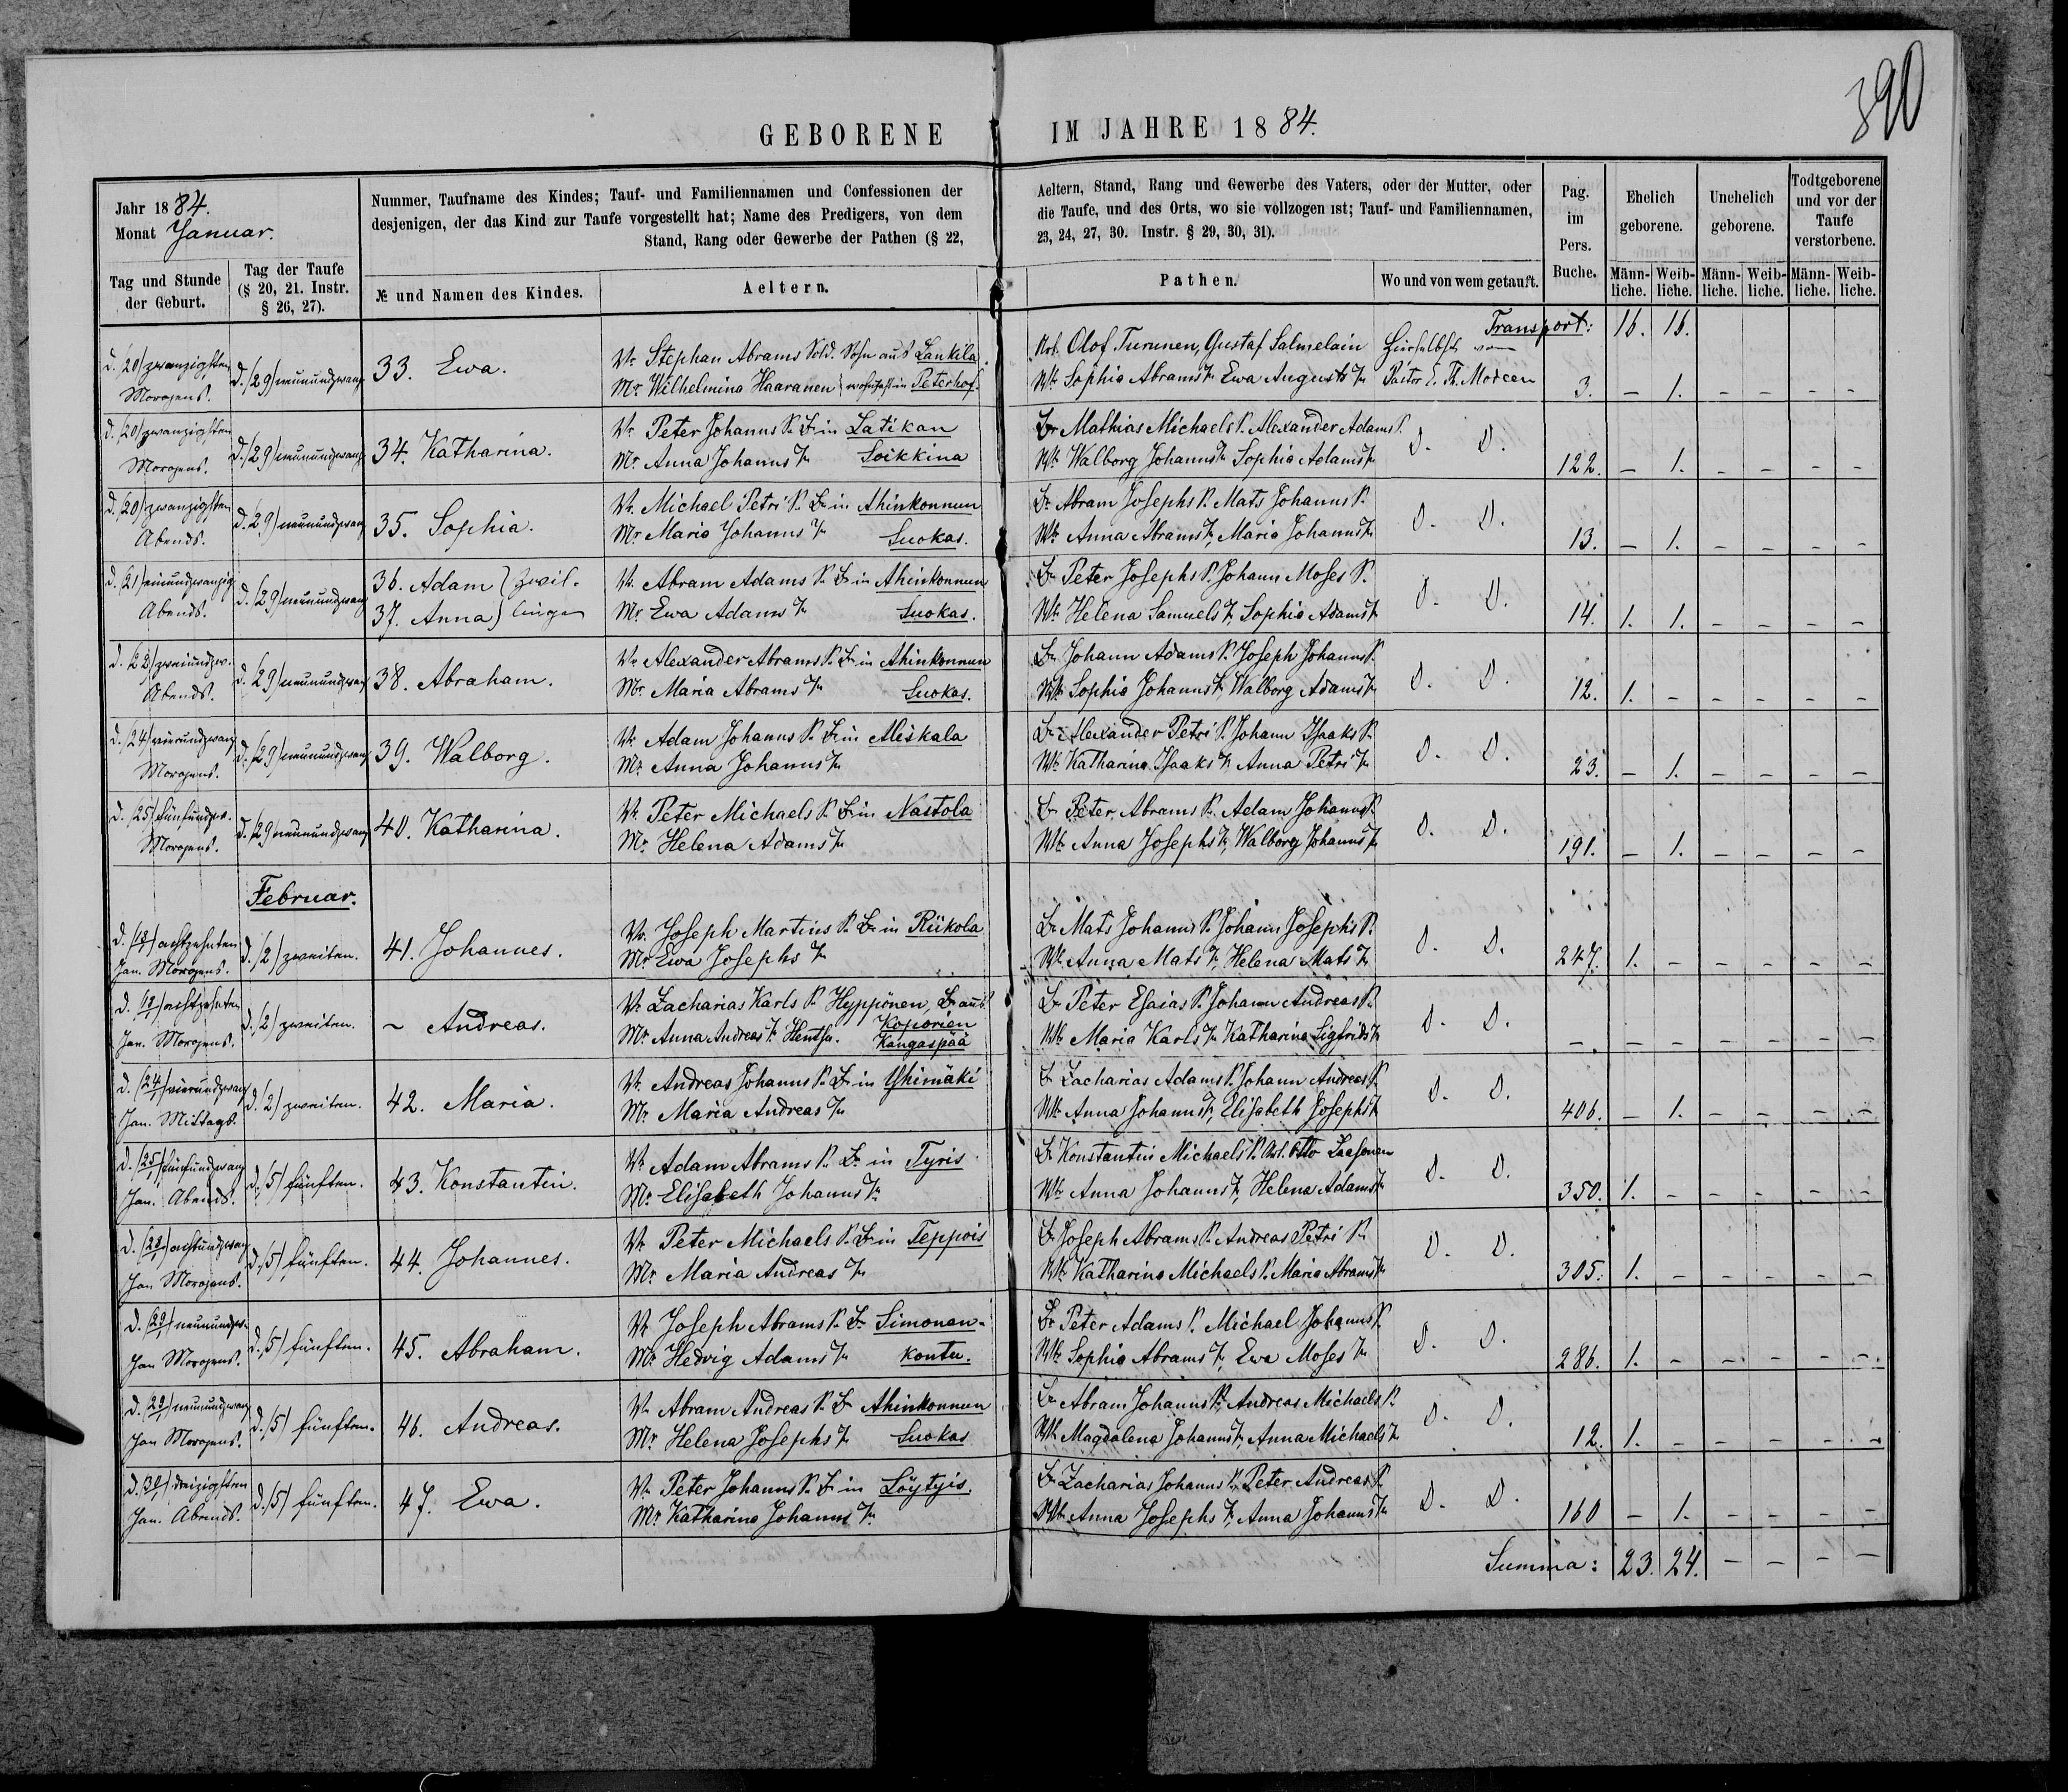 390
GEBORENE IM JAHRE 1884.
Jahr 1884.
Monat Januar.
Nummer, Taufname des Kindes; Tauf- und Familiennamen und Confessionen der Aeltern, Stand, Rang und Gewerbe des Vaters, oder der Mutter, oder
desjenigen, der das Kind zur Taufe vorgestellt hat; Name des Predigers, von dem die Taufe, und des Orts, wo sie vollzogen ist; Tauf- und Familiennamen,
Stand, Rang oder Gewerbe der Pathen (§ 22, 23, 24, 27, 30. Instr. § 29, 30, 31).
Pag. im Pers. Buche.
Ehelich geborene.
Unehelich geborene.
Todtgeborene und vor der Taufe verstorbene.
Tag und Stunde der Geburt.
Tag der Taufe (§ 20, 21. Instr. § 26, 27).
№ und Namen des Kindes.
Aeltern.
Pathen.
Wo und von wem getauft.
Männliche. Weibliche. Männliche. Weibliche. Männliche. Weibliche.
Transport: 16. 16.
d. (20) zwanzigsten Morgens. d. (29) neunundzwanz 33. Ewa.
Vr. Stephan Abrams Sold. Sohn aus Lankila.
Mr. Wilhelmina Haaranen wohnhaft in Peterhof
Olof Turunen, Gustaf Salmelain
Wtr Sophia Abrams Tr Ewa Augusts Tr
Hierselbst vom
Pastor E. Th. 3. – 1. – – – –
d. (20) zwanzigsten Morgens. d. (29) neunundzwanz 34. Katharina.
Vr. Peter Johanns S. Br in Latikan
Mr. Anna Johanns Tr Soikkina
Br Mathias Michaels S. Alexander Adams S.
Wtr Walborg Johanns Tr Sophia Adams Tr
D. D. 122. – 1. – – – –
d. (20) zwanzigsten Abends. d. 29) neunundzwanz 35. Sophia.
Vr. Michael Petri S. Br in Ahinkonnun
Mr Maria Johanns Tr Suokas.
Br Abram Josephs S. Mats Johanns S.
Wtr Anna Abrams Tr, Maria Johanns Tr
D. D. 13. – 1. – – – –
d. (21) einundzwanzig Abends. d. (29) neunundzwanz 36. Adam } Zwil-
37. Anna } linge
Vr. Abram Adams S. Br in Ahinkonnun
Mr Ewa Adams Tr Suokas.
Br Peter Josephs S. Johann Moses S.
Wtr Helena Samuels Tr, Sophia Adams Tr
D. D. 14. 1. 1. – – – –
d. 22) zweiundzw. Abends. d. (29) neunundzwanz 38. Abraham.
Vr Alexander Abrams S. Br in Ahinkonnun
Mr. Maria Abrams Tr Suokas.
Br Johann Adams S. Joseph Johanns S.
Wtr Sophia Johanns Tr, Walborg Adams Tr
D. D. 12. 1. – – – – –
d. (24) vierundzwanz Morgens. d. (29) neunundzwanz 39. Walborg.
Vr Adam Johanns S. Br in Aliskala
Mr. Anna Johanns Tr
Br Alexander Petri S. Johann Isaaks S.
Wtr Katharina Isaaks Tr Anna Petri Tr
D. D. 23. – 1. – – – –
d. (25) fünfundzw. Morgens. d. (29) neunundzwanz 40. Katharina.
Vr. Peter Michaels S. Br in Nastola
Mr Helena Adams Tr
Br Peter Abrams S. Adam Johanns S.
Wtr Anna Josephs Tr, Walborg Johanns Tr
D. D. 191. – 1. – – – –
Februar.
d. (18) achtzehnten Jan. Morgens. d. (2) zweiten. 41. Johannes.
Vr. Joseph Martins S. Br in Riikola
Mr Ewa Josephs Tr
Br Mats Johanns S. Johann Josephs S.
Wtr Anna Mats Tr, Helena Mats Tr
D. D. 247. 1. – – – – –
d. (18) achtzehnten Jan. Morgens. d. (2) zweiten. ~ Andreas.
Vr Zacharias Karls S. Hyppönen, Br aus Koporien
Mr Anna Andreas Tr Kangaspää
Br Peter Esaias S. Johann Andreas S.
Wtr Maria Karls Tr Katharina Sigfrids Tr
D. D. – – – – – – –
d. (24) vierundzwanz Jan. Mittags. d. (2) zweiten. 42. Maria.
Vr. Andreas Johanns S. Br in Yhimäki
Mr Maria Andreas Tr
Br Zacharias Adams S. Johann Andreas S.
Wtr Anna Johanns Tr, Elisabeth Josephs Tr
D. D. 406. – 1. – – – –
d. (25) fünfundzwanz Jan. Abends. d. (5) fünften. 43. Konstantin.
Vr Adam Abrams S. Br in Tyris
Mr. Elisabeth Johanns Tr
Br Konstantin Michaels S. Otto Laasonen
Wtr Anna Johanns Tr, Helena Adams Tr
D. D. 350. 1. – – – – –
d. (28) achtundzwanz Jan Morgens. d. (5) fünften. 44. Johannes.
Vr. Peter Michaels S. Br in Teppois
Mr. Maria Andreas Tr
Br Joseph Abrams S. Andreas Petri S.
Wtr Katharina Michaels Tr Maria Abrams Tr
D. D. 305. 1. – – – – –
d. (29) neunundzw. Jan Morgens. d. (5) fünften. 45. Abraham.
Vr Joseph Abrams S. Br Simonan-
Mr Hedvig Adams Tr kontu.
Br Peter Adams S. Michael Johanns S.
Wtr Sophia Abrams Tr, Ewa Moses Tr
D. D. 286. 1. – – – – –
d. (29) neunundzwanz Jan Morgens. d. (5) fünften. 46. Andreas.
Vr. Abram Andreas S. Br Ahinkonnun
Mr Helena Josephs Tr Suokas
Br Abram Johanns S., Andreas Michaels S.
Wtr Magdalena Johanns Tr, Anna Michaels Tr
D. D. 12. 1. – – – – –
d. 30) dreizigsten Jan. Abends. d. (5) fünften. 47. Ewa.
Vr. Peter Johanns S. Br in Löytyis.
Mr Katharina Johanns Tr
Br Zacharias Johanns S., Peter Andreas S.
Wtr Anna Josephs Tr, Anna Johanns Tr
D. D. 160 – 1. – – – –
Summa: 23. 24. – – – –